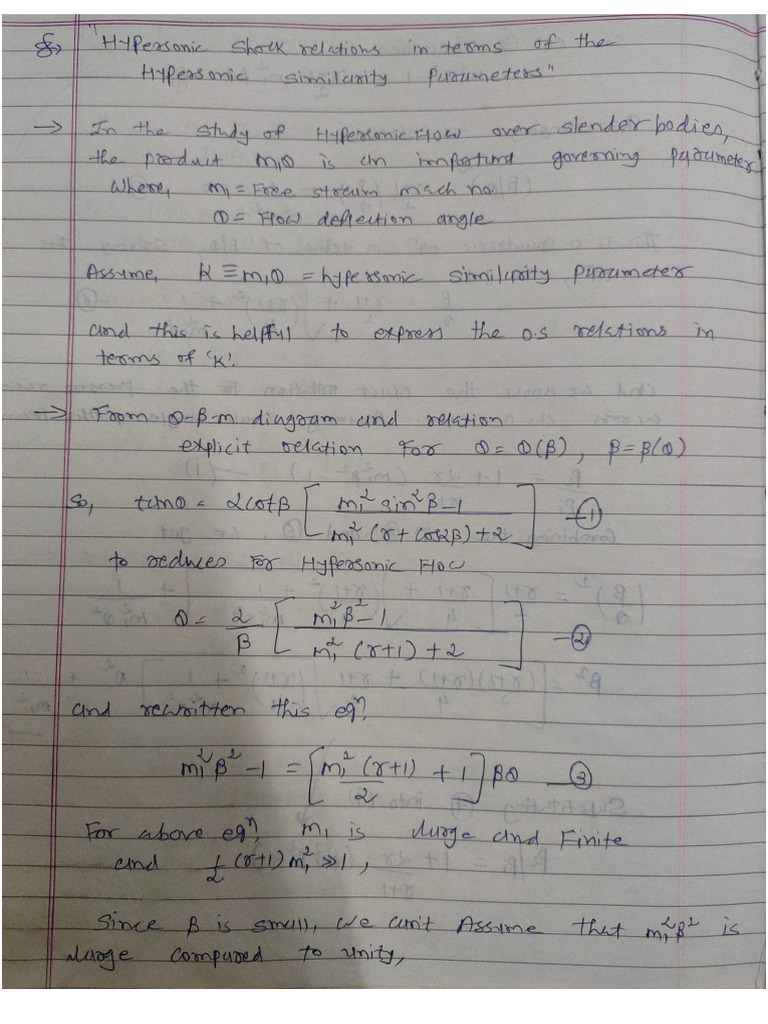 §→ "Hypersonic shock relations in terms of the
Hypersonic similarity parameters"
→ In the study of Hypersonic Flow over slender bodies,
the product M₁θ is an important governing parameter
where, M₁ = Free stream mach no.
θ = Flow deflection angle
Assume, K ≡ M₁θ = hypersonic similarity parameter
and this is helpful to express the o.s relations in
terms of 'K'.
→ From θ-β-m diagram and relation
explicit relation for θ = θ(β), β = β(θ)
So, tanθ = 2cotβ [ (m₁² sin²β - 1) / (m₁² (γ + cos2β) + 2) ] —①
to reduces for Hypersonic Flow
θ = 2/β [ (m₁²β² - 1) / (m₁² (γ+1) + 2) ] —②
and rewritten this eqⁿ,
m₁²β² - 1 = [ m₁² (γ+1)/2 + 1 ] βθ —③
For above eqⁿ, m₁ is large and Finite
and 1/2 (γ+1) m₁² ≫ 1,
Since β is small, we can't Assume that m₁²β² is
large compared to unity,